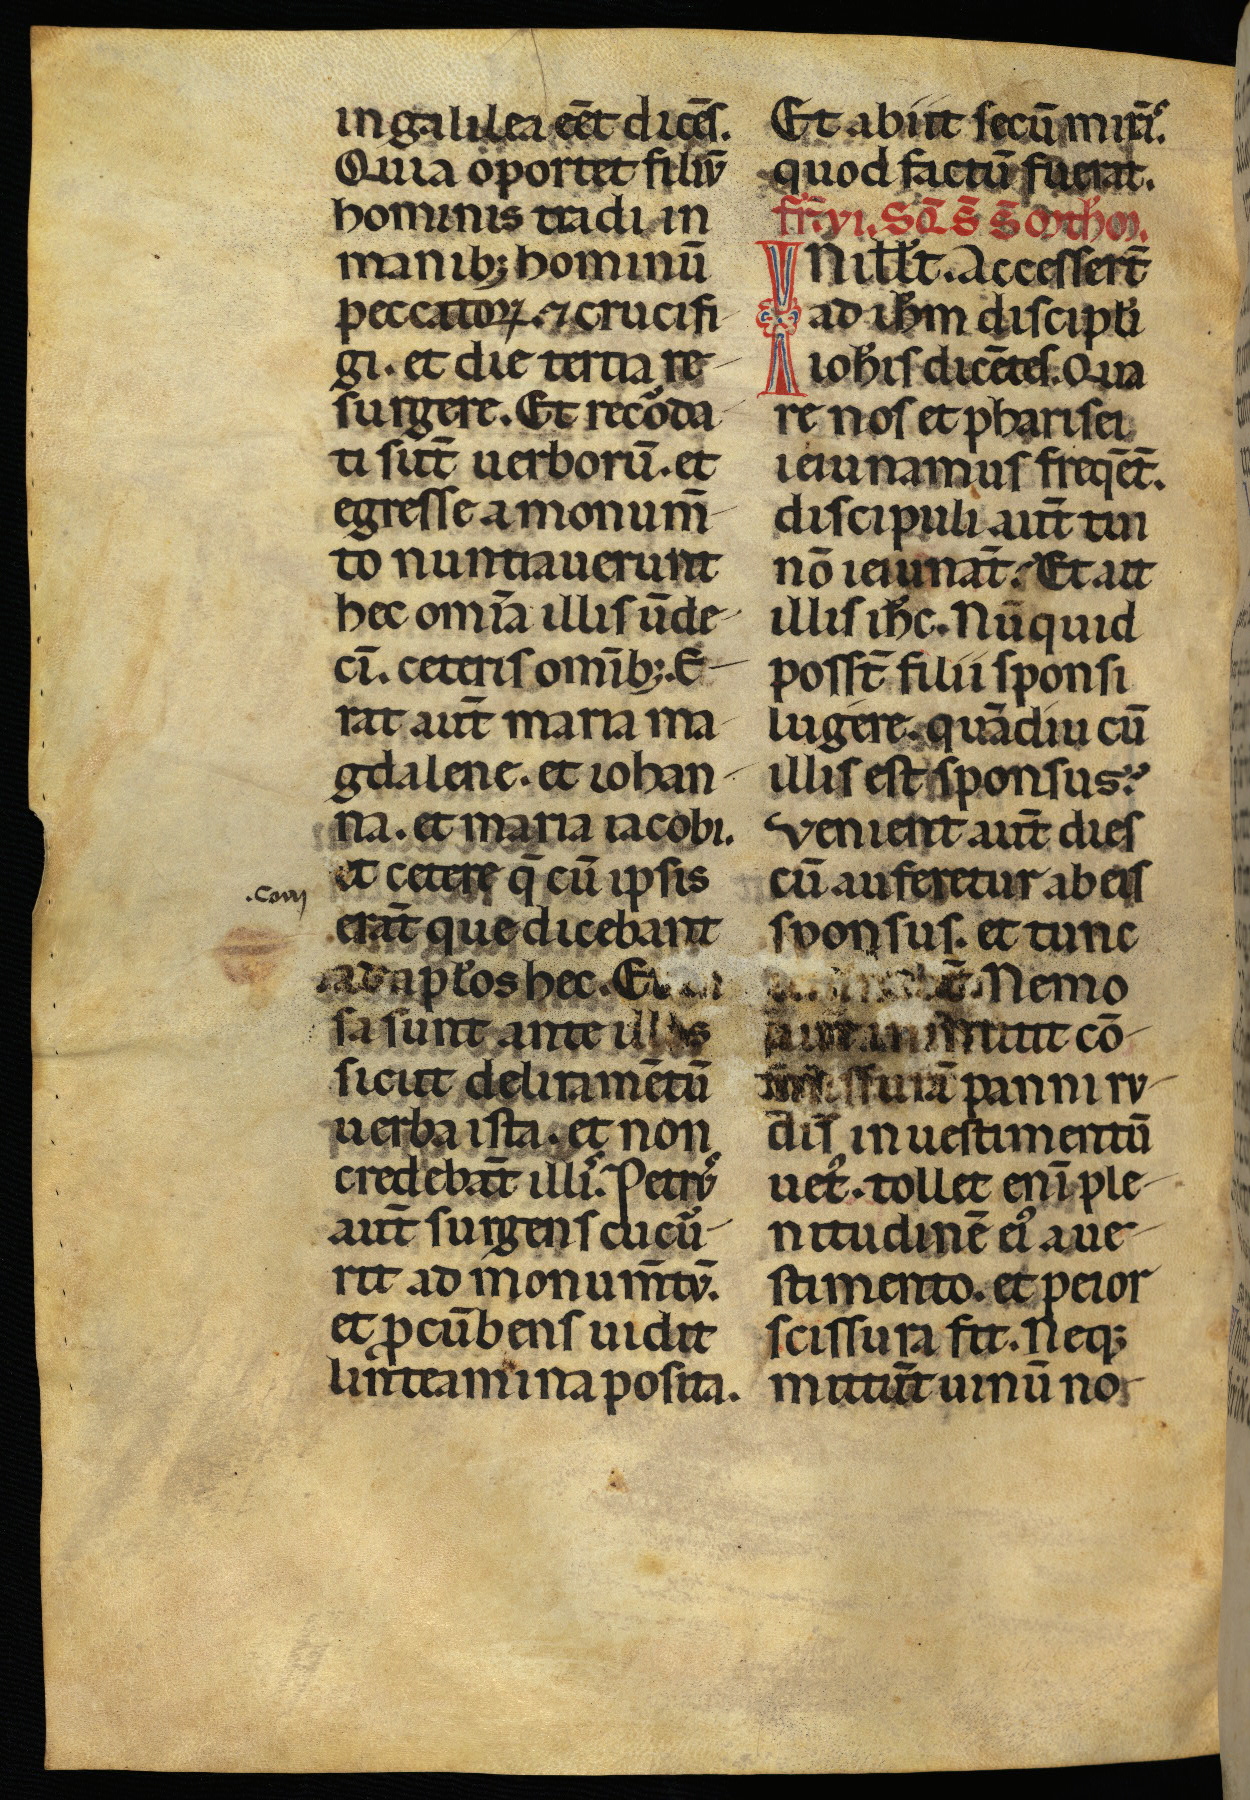 in galilea eēt dicēs.
Quia oportet filiū
hominis tradi in
manib; hominū
peccatoꝝ. ⁊ crucifi
gi. et die tertia re-
surgere. Et recoꝛ̄da-
ti sūt uerborū. et
egresse a monum̄-
to nuntiauerunt
hec omīa illis ūde-
cī. ceteris omīb;. E-
rat aūt maria ma-
gdalene. et iohan-
na. et maria iacobi.
et cetere q̄ cū ipsis
.com
erāt que dicebant
ad apłos hec. Et
sa sunt ante illos
sicut deliramētū
uerba ista. et non
credebāt illis. Petrꝰ
aūt surgens cucū-
rit ad monum̄tū.
et ꝓcūbens uidit
linteamina posita.
Et abiit secū mirās.
quod factū fuerat.
fr̄. vi. Sc̄d s̄ s̄ Matheū.
IN illt. Accesserт̄
ad ih̄m discipłi
ioh̄is dicētes. Qua
re nos et pharisei
ieiunamus freqēt̄.
discipuli aūt tui
nō ieiunāt. Et ait
illis ih̄c. Nūquid
possт̄ filii sponsi
lugere. quādiu cū
illis est sponsus?
Venient aūt dies
cū auferetur ab eis
sponsus. et tunc
Nemo
autem inmittit cō-
missurā panni ru-
dis̄ in uestimentū
uetꝰ. tollet enī ple-
nitudinē eiꝰ a ue-
stimento. et peior
scissura fit. Neq;
mittūt uinū no-